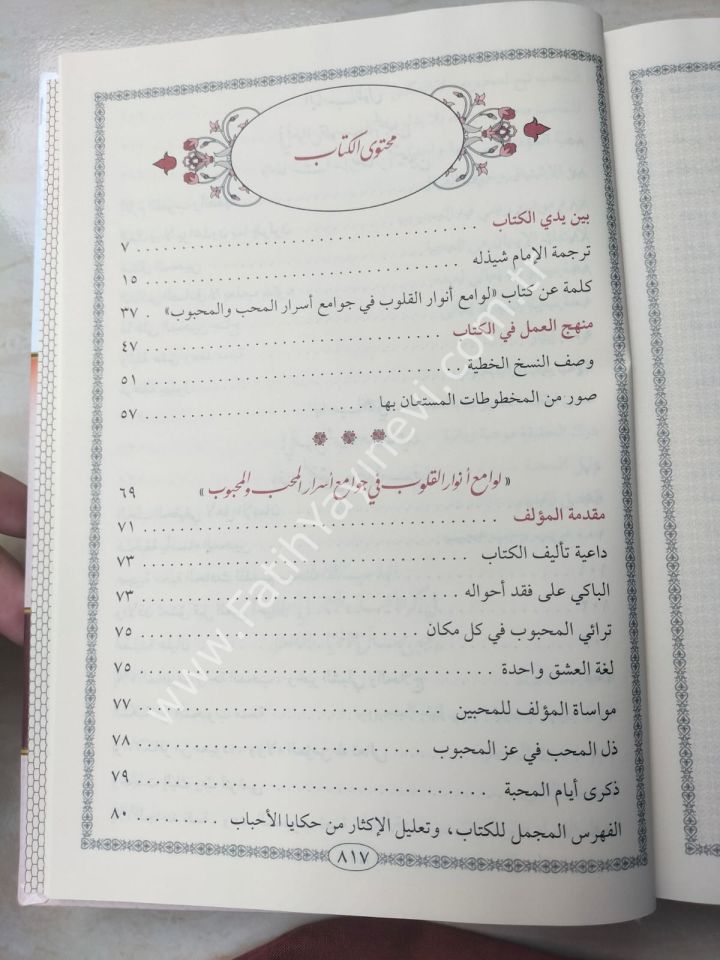 محتوى الكتاب
بين يدي الكتاب . . . . . . . . . . . . . . . . . . . . ٧
ترجمة الإمام شيذله . . . . . . . . . . . . . . . . . . . . ١٥
كلمة عن كتاب «لوامع أنوار القلوب في جوامع أسرار المحب والمحبوب» . ٣٧
منهج العمل في الكتاب . . . . . . . . . . . . . . . . . . . . ٤٧
وصف النسخ الخطية . . . . . . . . . . . . . . . . . . . . ٥١
صور من المخطوطات المستعان بها . . . . . . . . . . . . . . . . . . . . ٥٧
«لوامع أنوار القلوب في جوامع أسرار المحب والمحبوب» ٦٩
مقدمة المؤلف . . . . . . . . . . . . . . . . . . . . ٧١
داعية تأليف الكتاب . . . . . . . . . . . . . . . . . . . . ٧٣
الباكي على فقد أحواله . . . . . . . . . . . . . . . . . . . . ٧٣
ترائي المحبوب في كل مكان . . . . . . . . . . . . . . . . . . . . ٧٥
لغة العشق واحدة . . . . . . . . . . . . . . . . . . . . ٧٥
مواساة المؤلف للمحبين . . . . . . . . . . . . . . . . . . . . ٧٧
ذل المحب في عز المحبوب . . . . . . . . . . . . . . . . . . . . ٧٨
ذكرى أيام المحبة . . . . . . . . . . . . . . . . . . . . ٧٩
الفهرس المجمل للكتاب، وتعليل الإكثار من حكايا الأحباب . . . . . . . . ٨٠
٨١٧
www.FatihYayinevi.com.tr